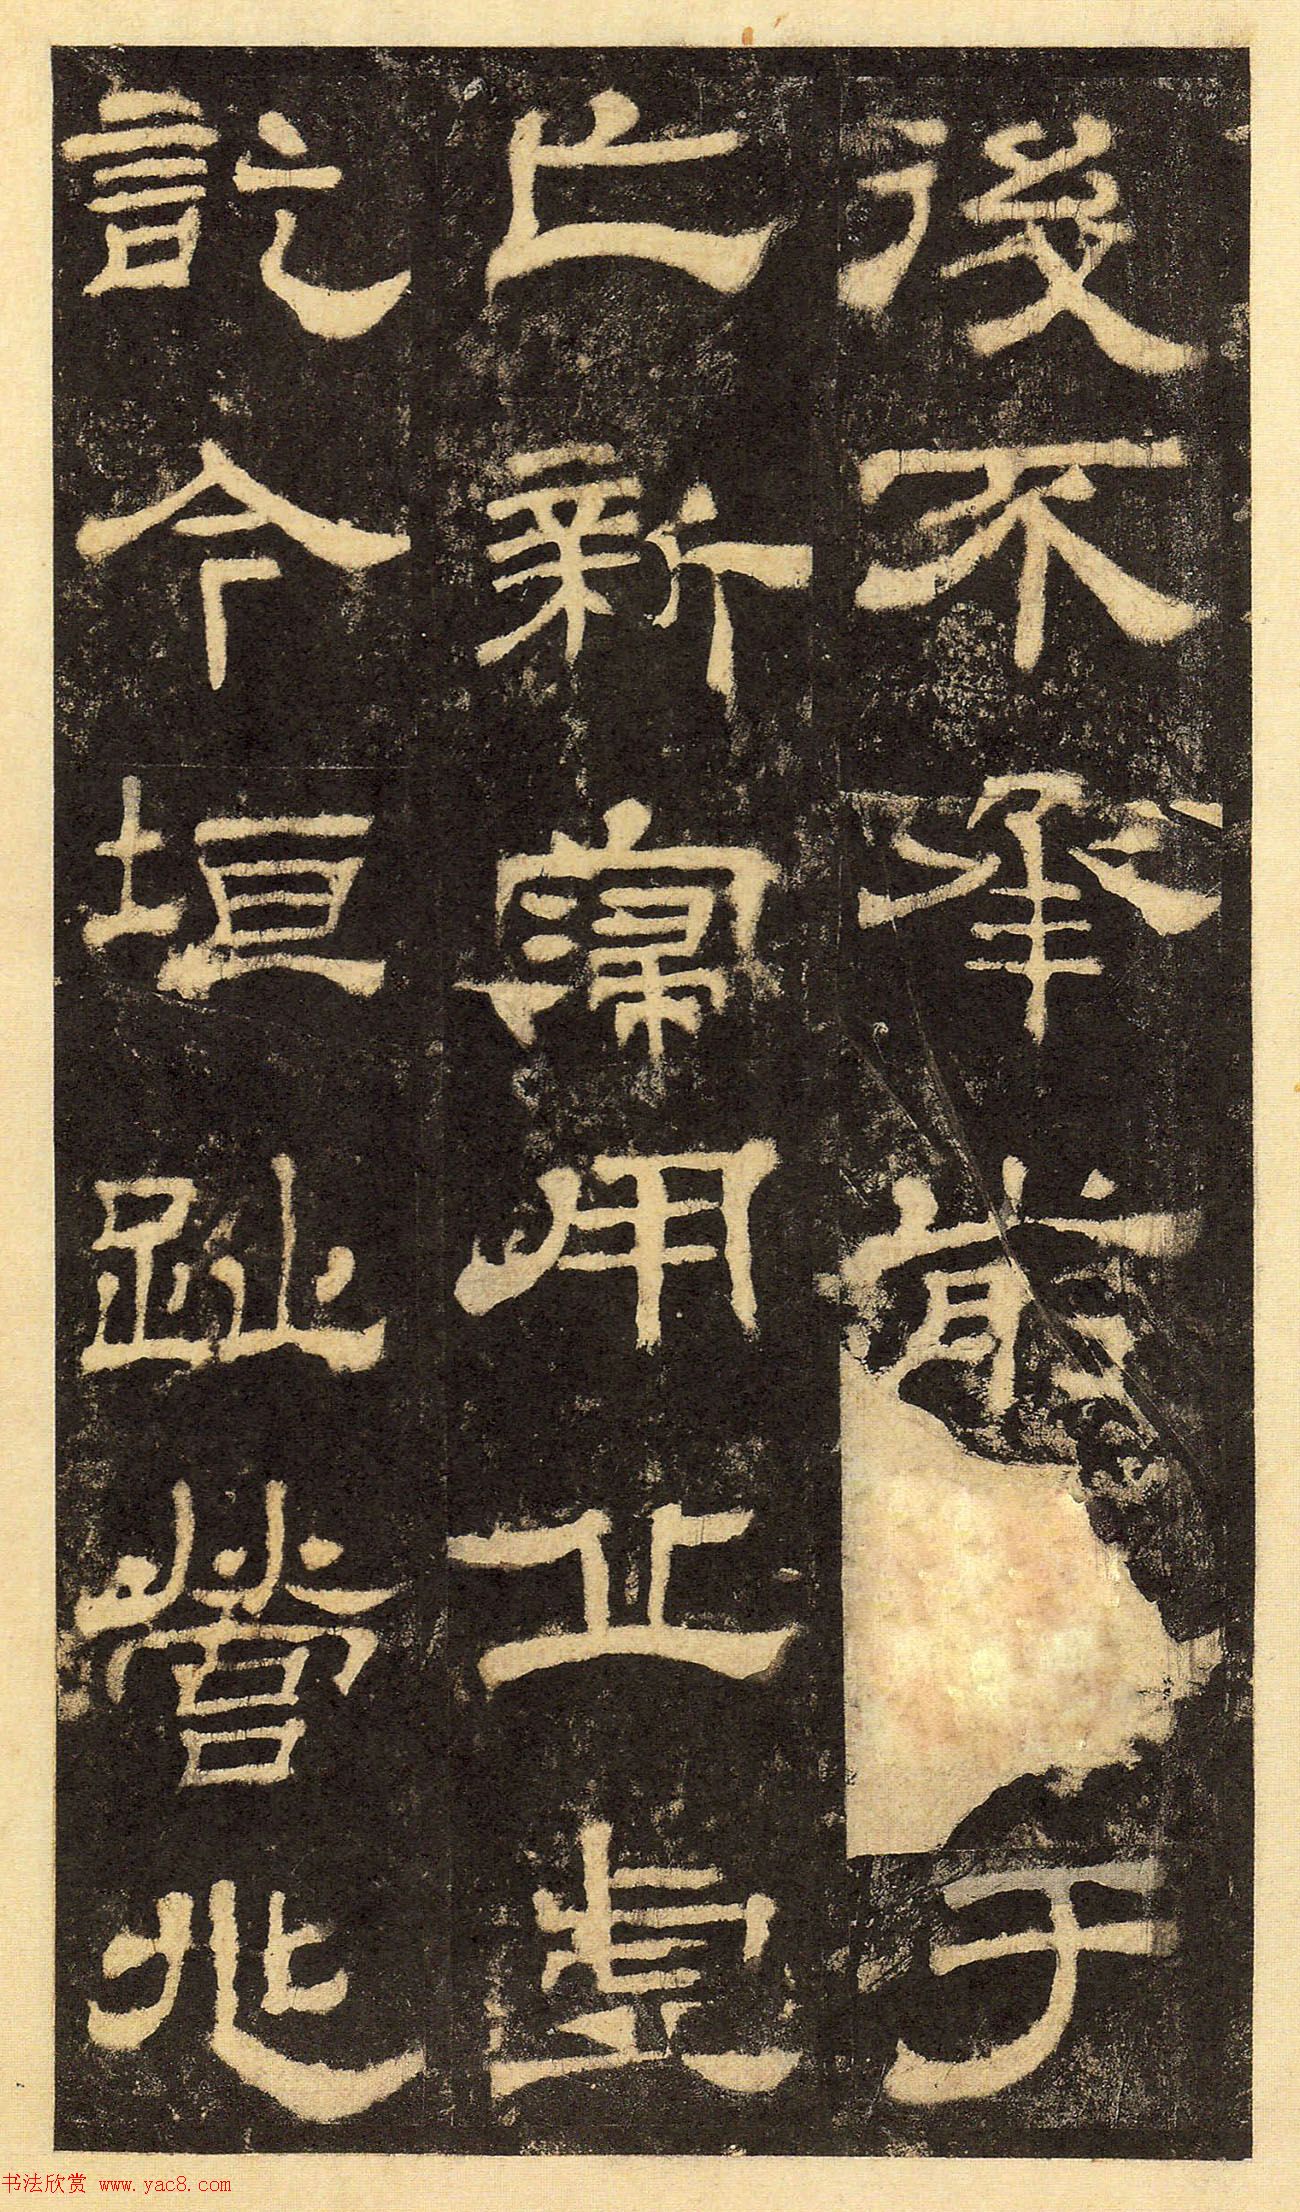 後不承前
于
亡新寖用丘虛
訖今垣趾營兆
书法欣赏 www.yac8.com